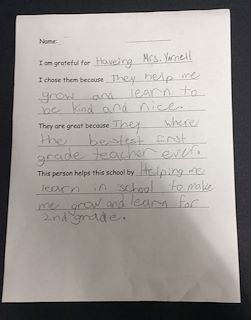 Name:
I am grateful for Haveing Mrs. Yarnell
I chose them because They help me
grow and learn to
be kind and nice.
They are great because They where
the bestest first
grade teacher ever.
This person helps this school by Helping me
learn in school to make
me grow and learn for
2nd grade.